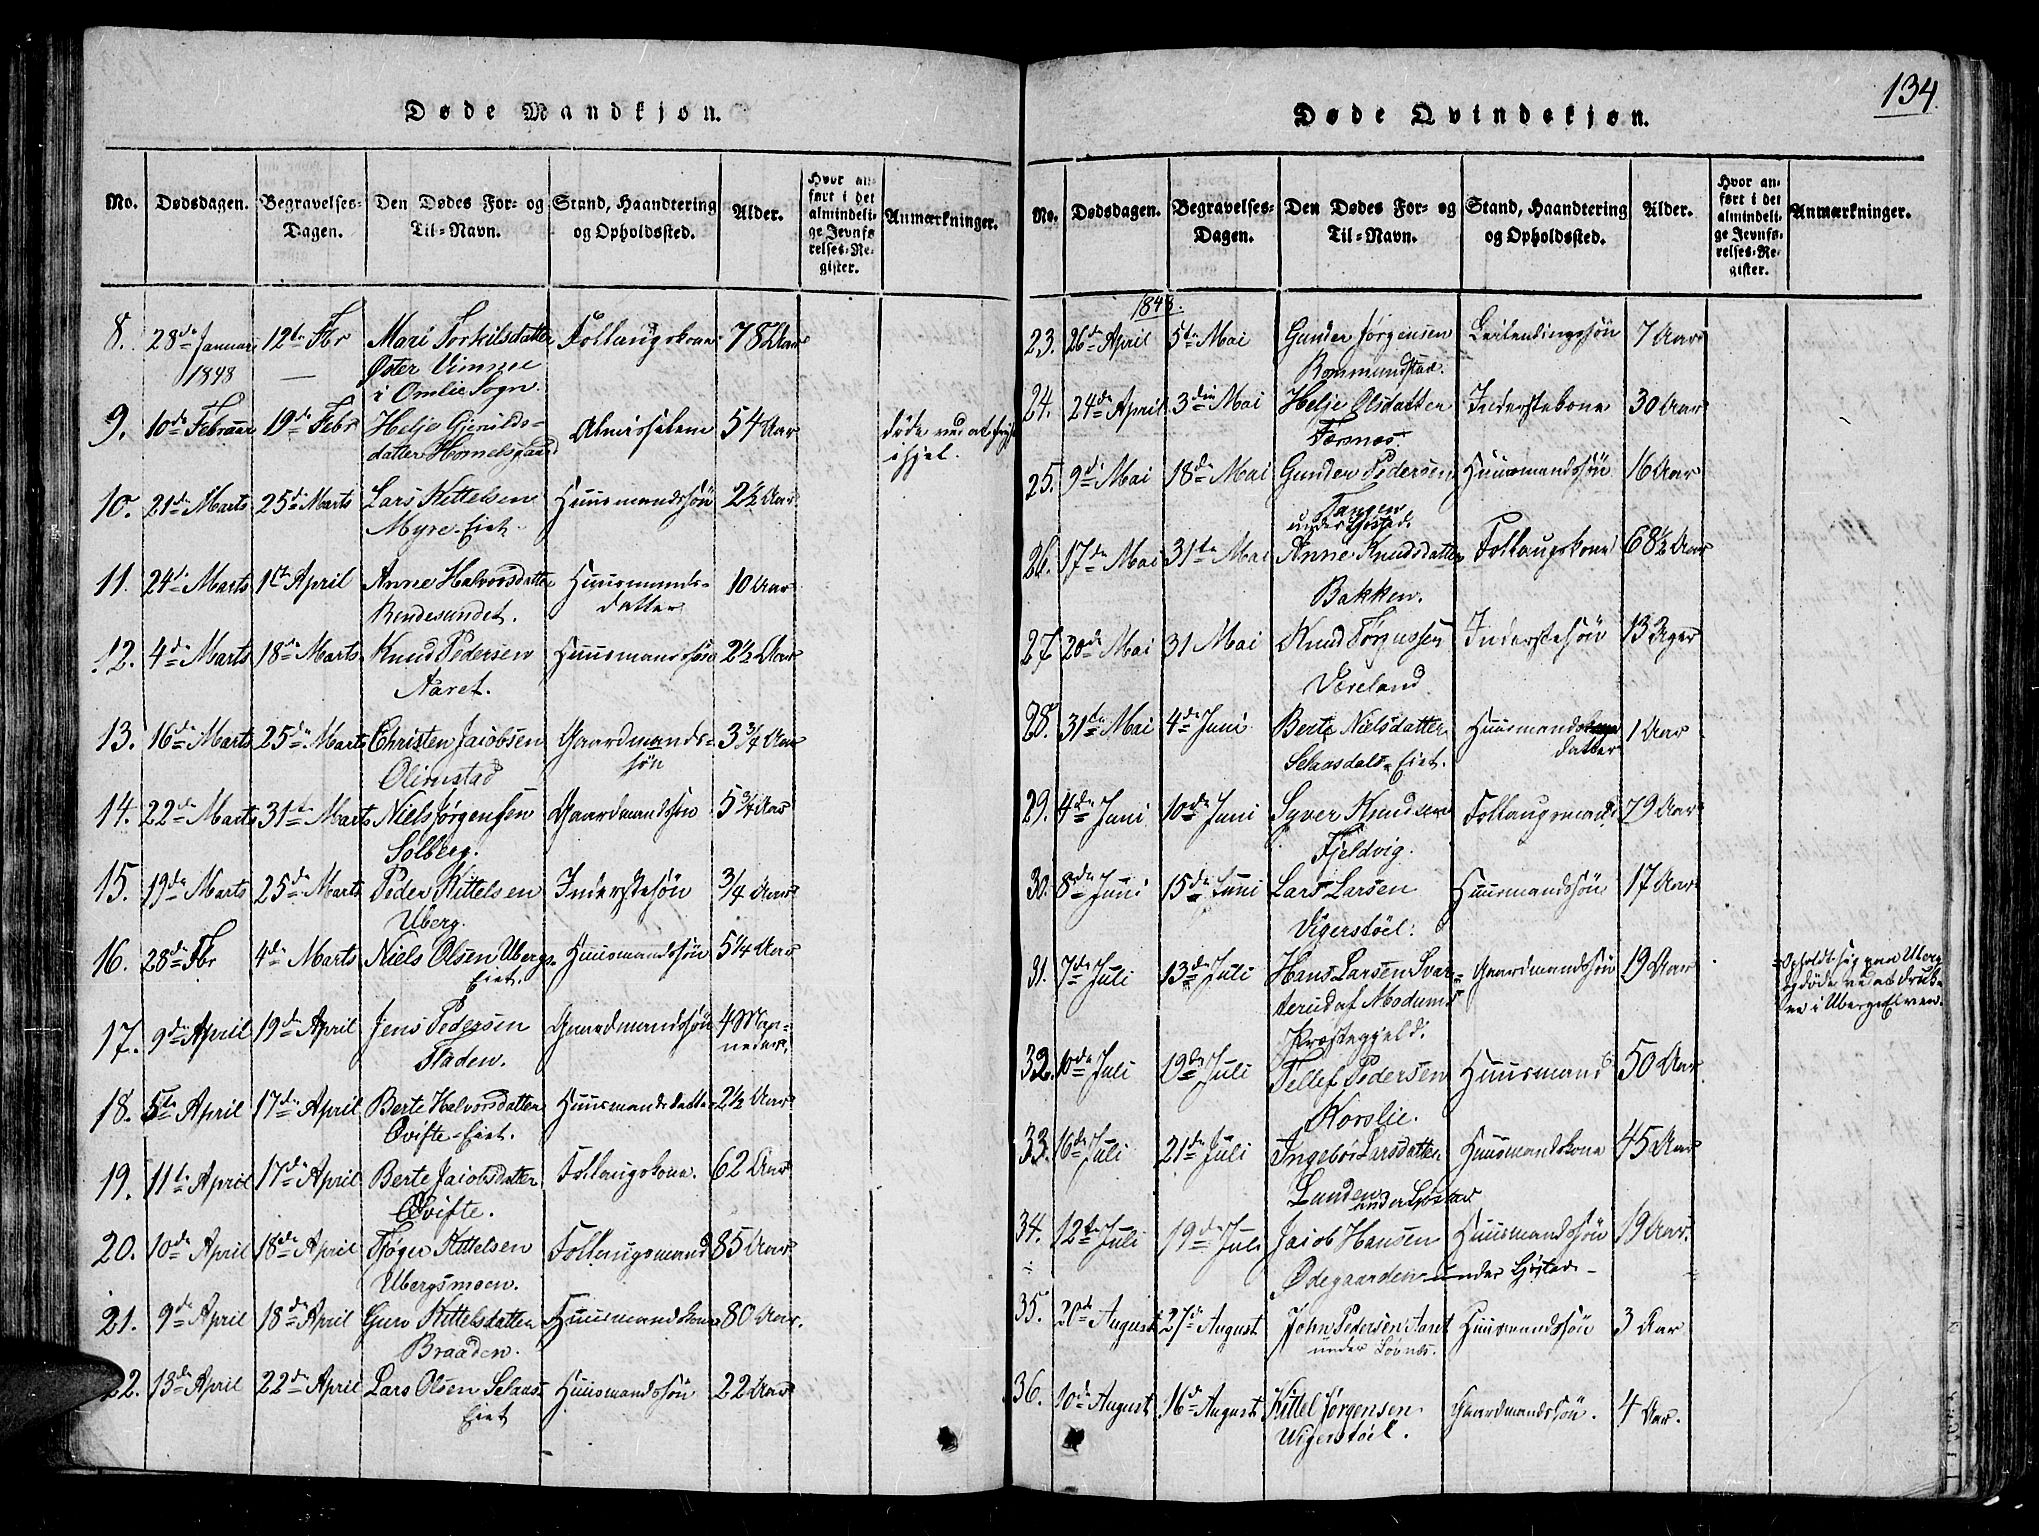 134.
Døde Mandkjøn.
No. Dødsdagen. Begravelses-Dagen. Den Dødes For- og Til-Navn. Stand, Haandtering og Opholdssted. Alder. Hvor anført i det almindelige Jevnførelses-Register. Anmærkninger.
8. 28de Januar 12te Fbr Mari Torkilsdatter Follaugskone 78 Aar
1848 — Øster Vimme
i Omlie Sogn.
9. 10de Februar 19de Febr Helje Gjerulds- Almisselem 54 Aar døde ved at fryse
datter Homelsgaard ihjel.
10. 21de Marts 25de Marts Lars Kittelsen Huusmandssøn 2½ Aar
Myre-Eiet.
11. 24de Marts 1ste April Anne Halvorsdatter Huusmands- 10 Aar
Rendesundet. datter
12. 4de Marts 18de Marts Knud Pedersen Huusmandssøn 2½ Aar
Aaret.
13. 16de Marts 25de Marts Christen Jacobsen Gaardmands- 3¾ Aar
Olimstad søn
14. 22de Marts 31te Marts Niels Jørgensen Gaardmandssøn 5¾ Aar
Solberg.
15. 19de Marts 25de Marts Peder Kittelsen Inderstesøn ¾ Aar
Uberg.
16. 28de Fbr 4de Marts Niels Olsen Ubergs Huusmandssøn 5¼ Aar
Eiet.
17. 9de April 19de April Jens Pedersen Gaardmandssøn 4 Maa-
Staden. neder.
18. 5te April 17de April Berte Halvorsdatter Huusmandsdatter 2½ Aar
Qvifte-Eiet.
19. 11te April 17de April Berte Jacobsdatter Follaugskone. 62 Aar
Qvifte.
20. 10de April 18de April Tjøger Kittelsen Follaugsmand 85 Aar
Ubergsmoen.
21. 9de April 18de April Guro Kittelsdatter Huusmandskone 80 Aar.
Braaden.
22. 13de April 22de April Lars Olsen Selaas- Huusmandssøn 22 Aar
Eiet
Døde Qvindekjøn.
No. Dødsdagen. Begravelses-Dagen. Den Dødes For- og Til-Navn. Stand, Haandtering og Opholdssted. Alder. Hvor anført i det almindelige Jevnførelses-Register. Anmærkninger.
1848.
23. 26de April 5te Mai Gunder Jørgensen Leilendingssøn 7 Aar
Rommundstad.
24. 24de April 3die Mai Helje Olsdatter Inderstekone 30 Aar
Tærnes.
25. 9de Mai 18de Mai Gunder Pedersen Huusmandssøn 16 Aar
Tangen
under Gjøstad.
26. 17de Mai 31te Mai Anne Knudsdatter Follaugskone 68½ Aar
Bakken.
27. 20de Mai 31 Mai Knud Tørjussen Inderstesøn 13 Uger
Væreland
28. 31te Mai 4de Juni Berte Nielsdatter Huusmands 1 Aar
Selaasdals-Eiet. datter
29. 4de Juni 10de Juni Syver Knudsen Follaugsmand 79 Aar
Fjeldvig.
30. 8de Juni 15de Juni Lars Larsen Huusmandssøn 17 Aar
Vigerstøel.
31. 7de Juli 13de Juli Hans Larsen Svar- Gaardmandssøn 19 Aar Opholdt sig paa Uberg
terud af Modums og døde ved at druk-
Præstegjeld. ne i UbergsElven.
32. 10de Juli 19de Juli Tellef Pedersen Huusmand 50 Aar
Norslie.
33. 16de Juli 21de Juli Ingebør Larsdatter Huusmandskone 45 Aar
Lunden under Gjøstad
34. 12te Juli 19de Juli Jacob Hansen Huusmandssøn 19 Aar.
Ødegaarden under Gjøstad
35. 20de August 27de August John Pedersen Aaret Huusmandssøn 3 Aar
under Løvnæs.
36. 10de August 16de August Kittel Jørgensen Gaardmandssøn. 4 Aar.
Vigerstøel.